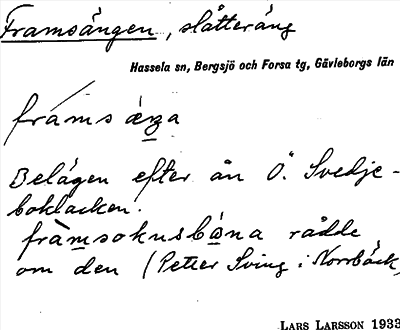 Framsängen, slåtteräng
Hassela sn, Bergsjö och Forsa tg, Gävleborgs län
Belägen efter ån Ö. Svedje-
boklacken.
rådde
om den (Petter Sving i Norrbäck)
LARS LARSSON 1933